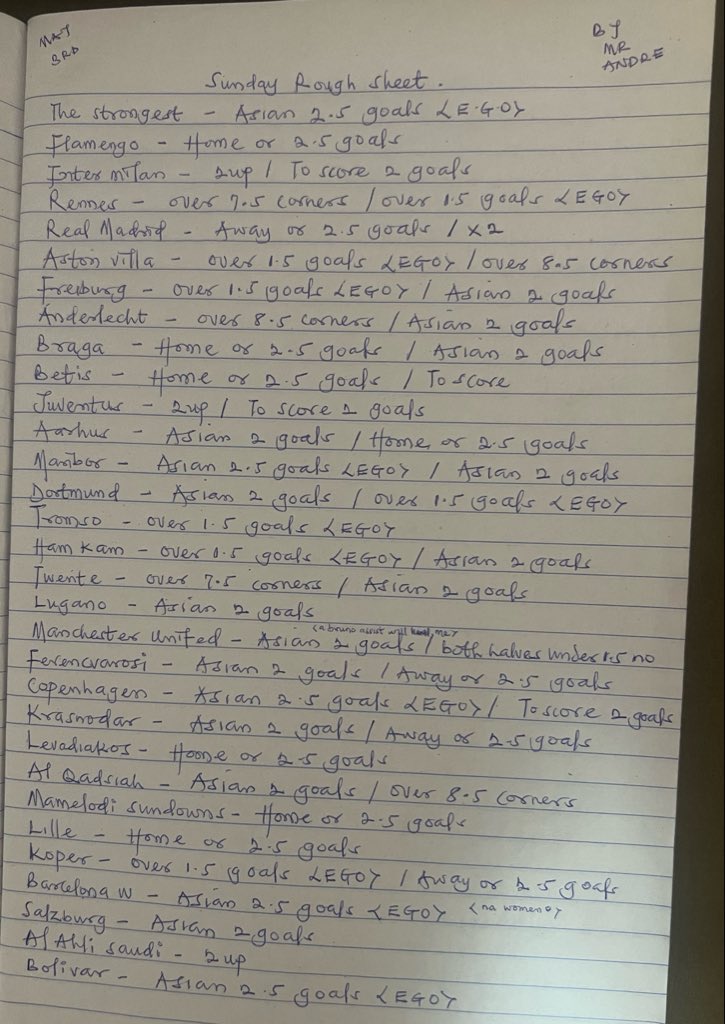 MAY
3RD
BY
MR
ANDRE
Sunday Rough sheet.
The strongest - Asian 2.5 goals <E.G.O>
Flamengo - Home or 2.5 goals
Inter milan - 2up / To score 2 goals
Rennes - over 7.5 corners / over 1.5 goals <EGO>
Real Madrid - Away or 2.5 goals / X2
Aston villa - over 1.5 goals <EGO> / over 8.5 corners
Freiburg - over 1.5 goals <EGO> / Asian 2 goals
Anderlecht - over 8.5 corners / Asian 2 goals
Braga - Home or 2.5 goals / Asian 2 goals
Betis - Home or 2.5 goals / To score
Juventus - 2up / To score 2 goals
Aarhus - Asian 2 goals / Home or 2.5 goals
Maribor - Asian 2.5 goals <EGO> / Asian 2 goals
Dortmund - Asian 2 goals / over 1.5 goals <EGO>
Tromso - over 1.5 goals <EGO>
Ham kam - over 1.5 goals <EGO> / Asian 2 goals
Twente - over 7.5 corners / Asian 2 goals
Lugano - Asian 2 goals
<a bruno assist will me>
Manchester united - Asian 2 goals / both halves under 1.5 no
Ferencvarosi - Asian 2 goals / Away or 2.5 goals
Copenhagen - Asian 2.5 goals <EGO> / To score 2 goals
Krasnodar - Asian 2 goals / Away or 2.5 goals
Levadiakos - Home or 2.5 goals
Al Qadsiah - Asian 2 goals / over 8.5 corners
Mamelodi sundowns - Home or 2.5 goals
Lille - Home or 2.5 goals
Koper - over 1.5 goals <EGO> / Away or 2.5 goals
Barcelona W - Asian 2.5 goals <EGO> <na women o>
Salzburg - Asian 2 goals
Al Ahli saudi - 2up
Bolivar - Asian 2.5 goals <EGO>